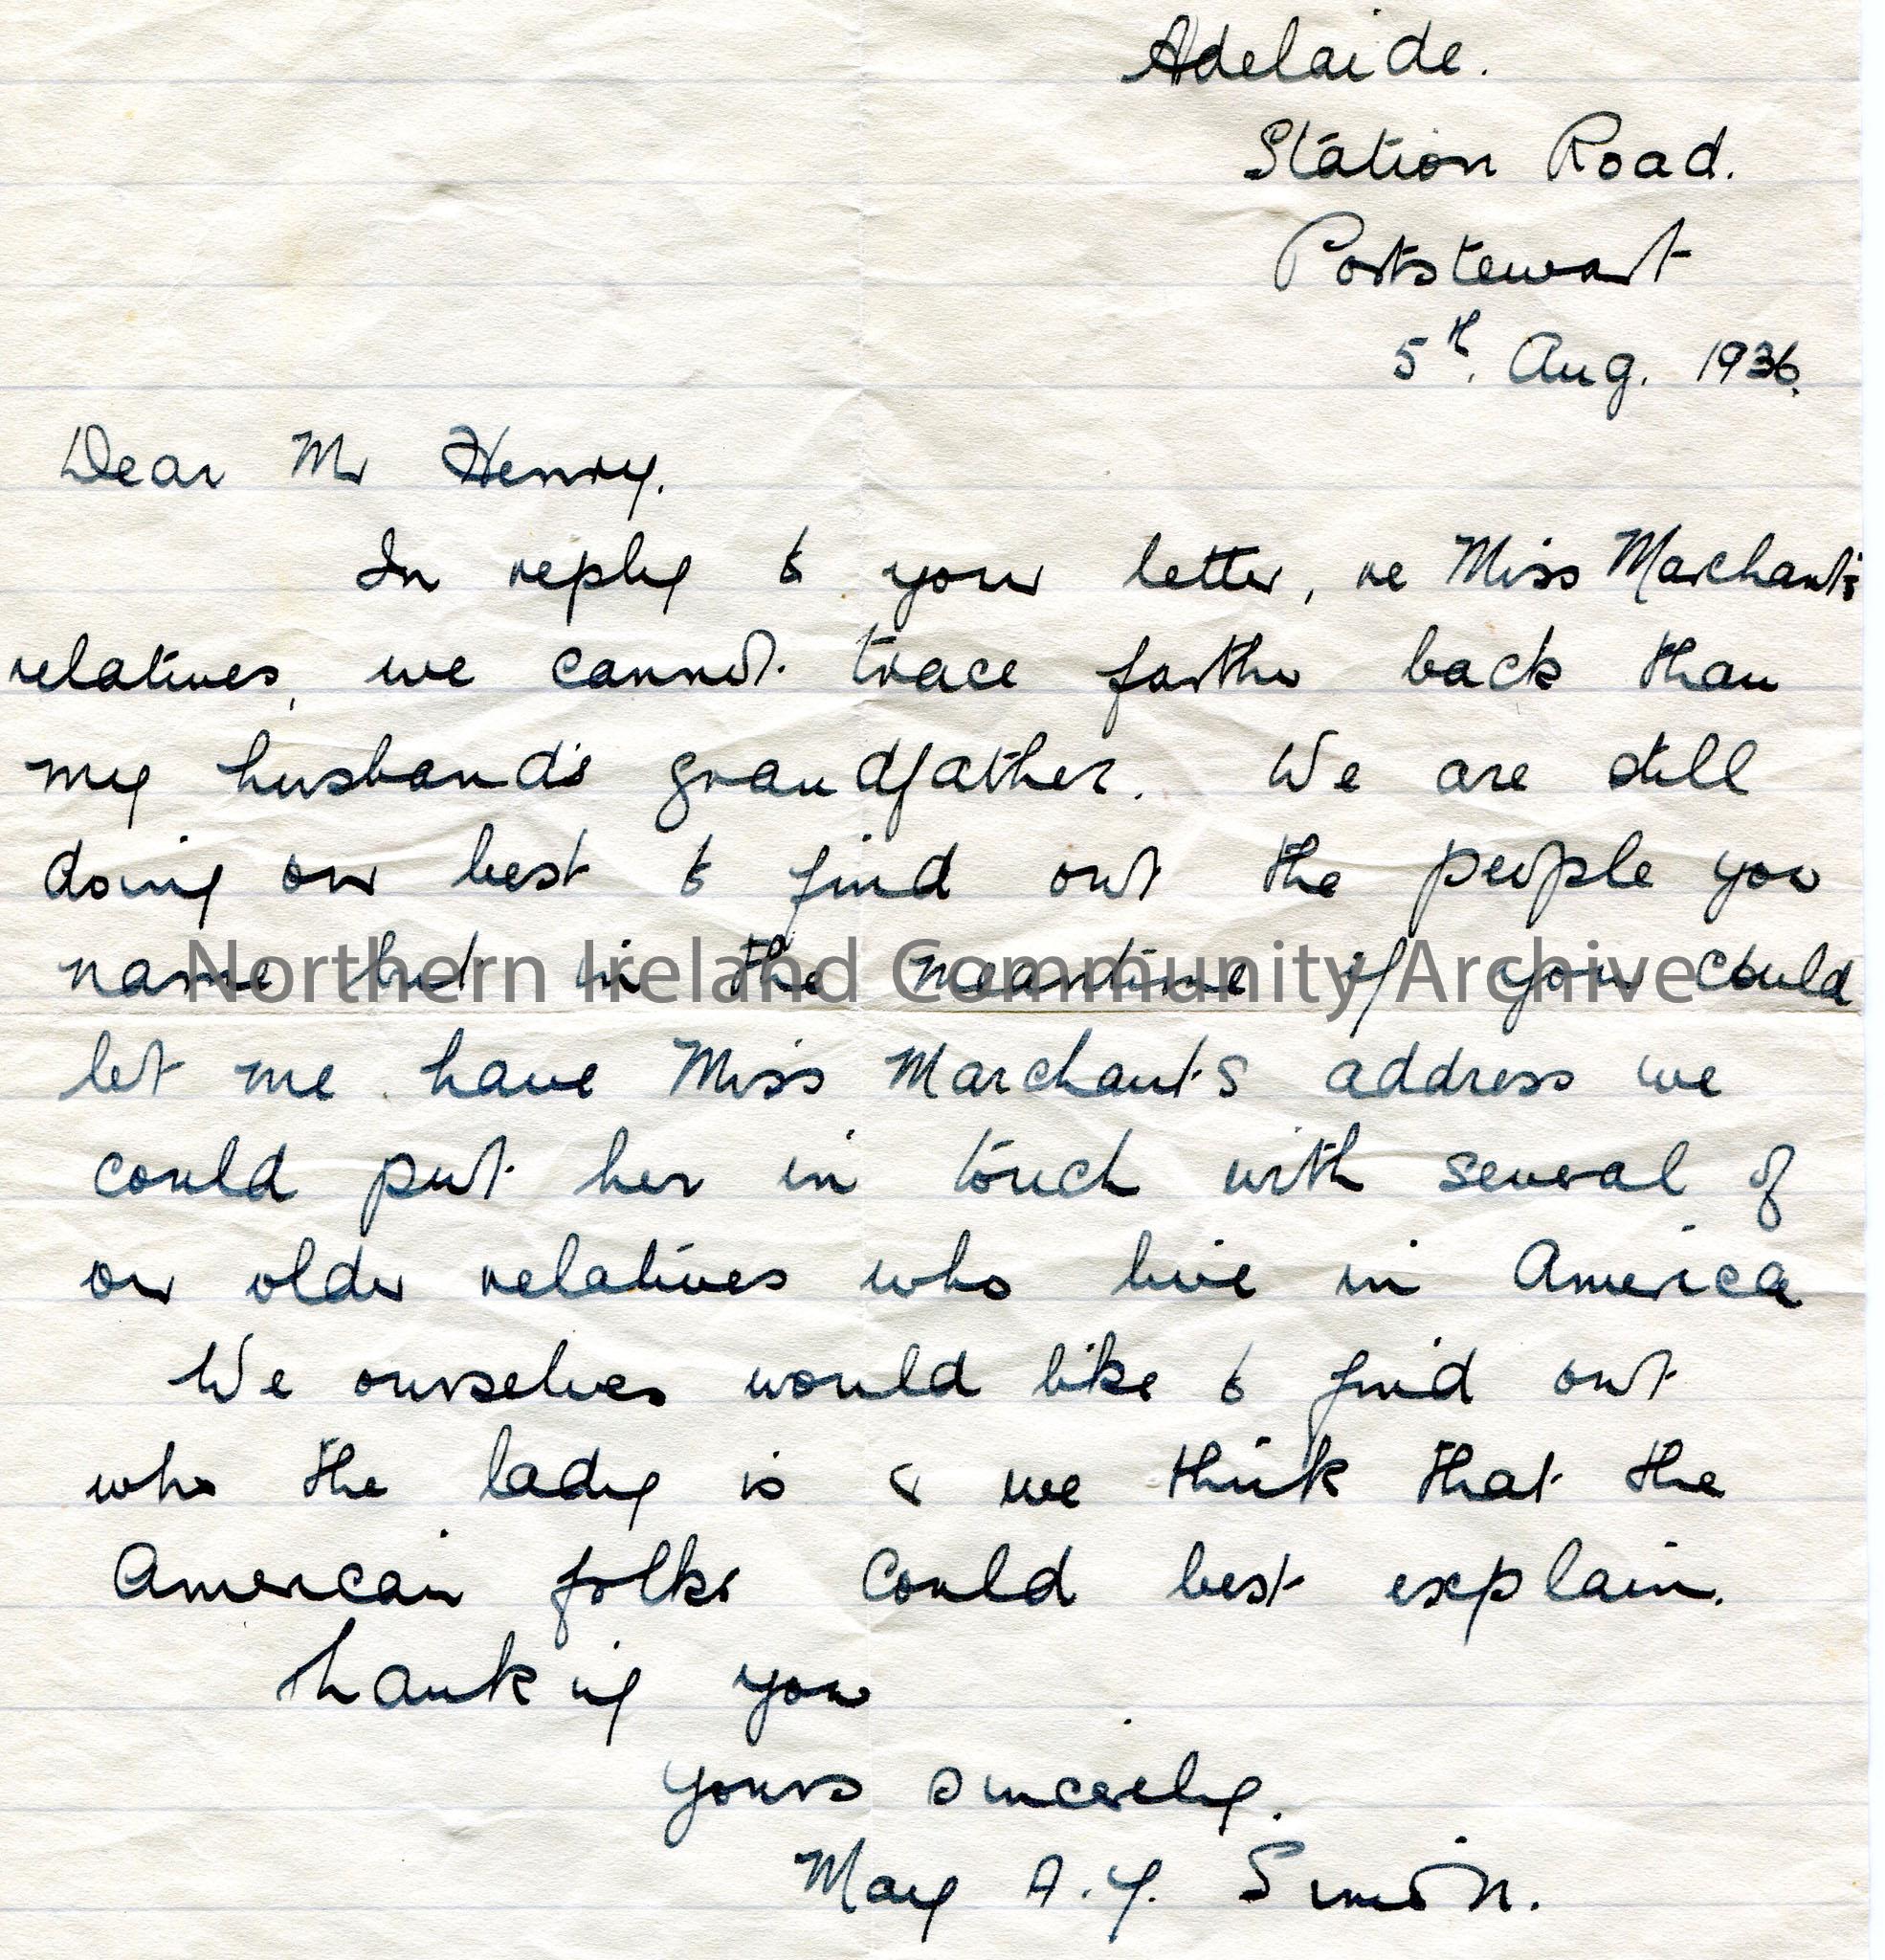 Adelaide.
Station Road.
Portstewart
5th. Aug. 1936.
Dear Mr Henry.
In reply to your letter, re Miss Marchant's
relatives, we cannot trace farther back than
my husband's grandfather. We are still
doing our best to find out the people you
name but in the meantime if you could
Northern Ireland Community Archive
let me have Miss Marchant's address we
could put her in touch with several of
our older relatives who live in America
We ourselves would like to find out
who the lady is & we think that the
American folks could best explain.
Thanking you
yours sincerely.
May A. Y. Simon.